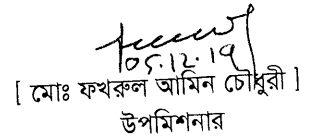 05.12.19
[ মোঃ ফখরুল আমিন চৌধুরী ]
উপমিশনার